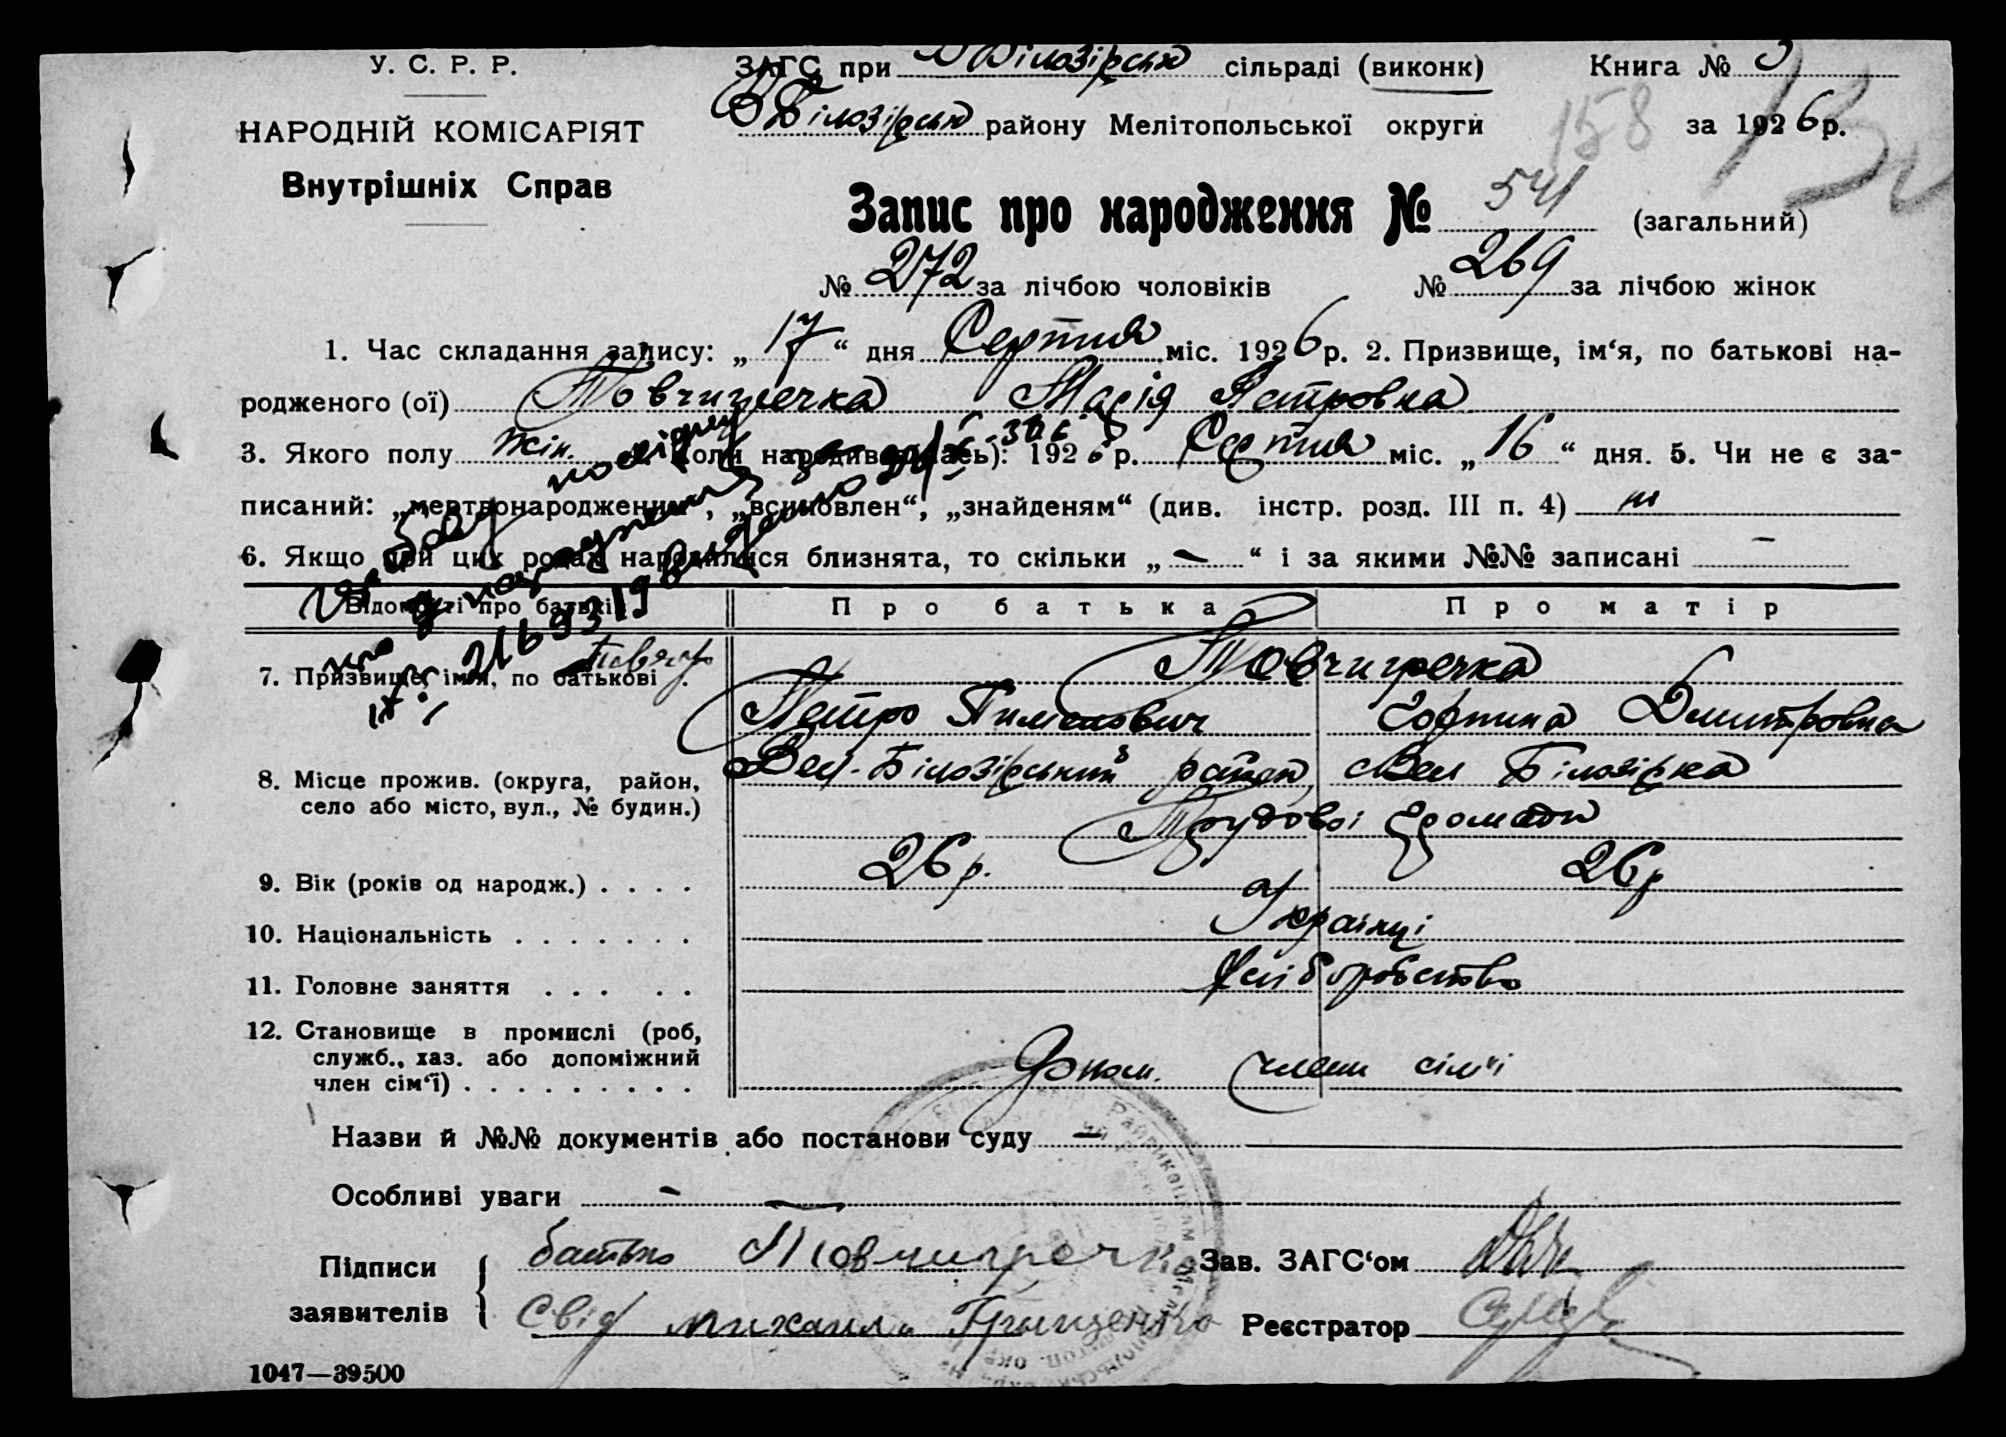 У. С. Р. Р.
ЗАГС при В Білозірськ сільраді (виконк) Книга № 3
НАРОДНІЙ КОМІСАРІЯТ
В Білозірськ району Мелітопольської округи за 1926 р.
158
Внутрішніх Справ
Запис про народження № 541 (загальний)
№ 272 за лічбою чоловіків № 269 за лічбою жінок
1. Час складання запису: „17“ дня Серпня міс. 1926 р. 2. Призвище, ім‘я, по батькові на-
родженого (ої) Товчигречка Марія Петровна
3. Якого полу жін. 4. Коли народив(лась): 1926 р. Серпня міс. „16“ дня. 5. Чи не є за-
писаний: „мертвонароджений“, „всиновлен“, „знайденям“ (див. інстр. розд. III п. 4) ні
6. Якщо при цих родах народилися близнята, то скільки „—“ і за якими №№ записані —
Відомості про батьків Про батька Про матір
7. Призвище, ім‘я, по батькові . Товчигречка
Петро Пименович Горпина Дмитровна
8. Місце прожив. (округа, район, Вел-Білозірський район, Вел Білозірка
село або місто, вул., № будин.)
Трудової громади
9. Вік (років од народж.) . . . . 26 р. 26 р
10. Національність . . . . . . . Українці
11. Головне заняття . . . . . Хліборобство
12. Становище в промислі (роб,
служб., хаз. або допоміжний
член сім‘ї) . . . . . . . . . члени сім'ї
Назви й №№ документів або постанови суду —
Особливі уваги —
Підписи батько Товчигречка Зав. ЗАГС‘ом
заявителів Свід Михаил Грищенко Реєстратор
1047—39500